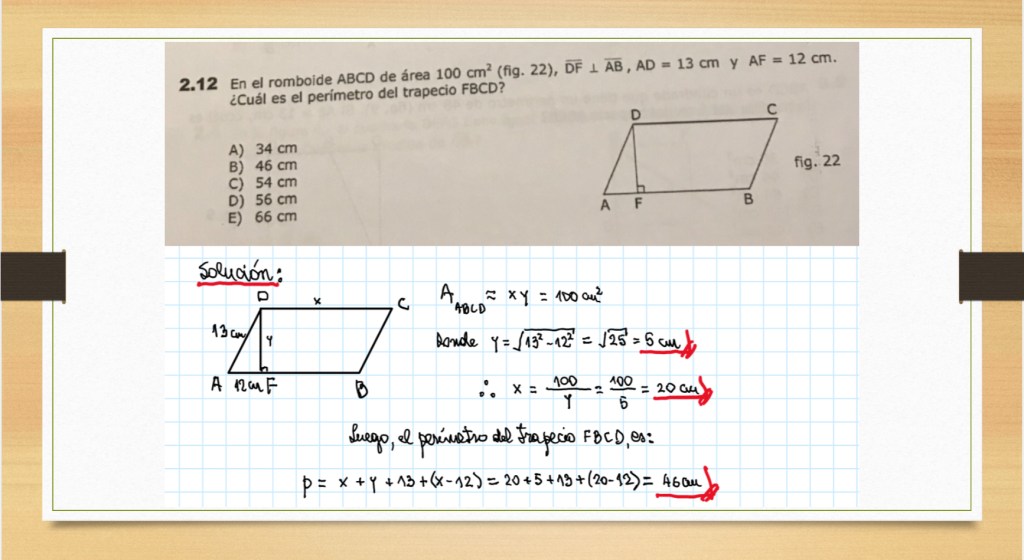 2.12 En el romboide ABCD de área 100 cm² (fig. 22), DF ⊥ AB, AD = 13 cm y AF = 12 cm.
¿Cuál es el perímetro del trapecio FBCD?
A) 34 cm
B) 46 cm
C) 54 cm
D) 56 cm
E) 66 cm
D C
A F B
fig. 22
Solución:
D x C
13 cm y
A 12 cm F B
A_ABCD ≈ xy = 100 cm²
Donde y = √(13² - 12²) = √25 = 5 cm
∴ x = 100/y = 100/5 = 20 cm
Luego, el perímetro del trapecio FBCD, es:
p = x + y + 13 + (x - 12) = 20 + 5 + 13 + (20 - 12) = 46 cm